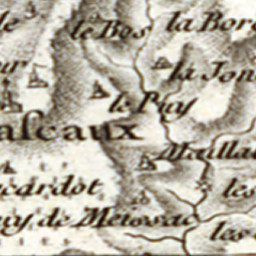 le
le Bos
la Bor
la Jon
le Puy
aſcaux
Maillac
cardot
les
uy de Meiossac
les